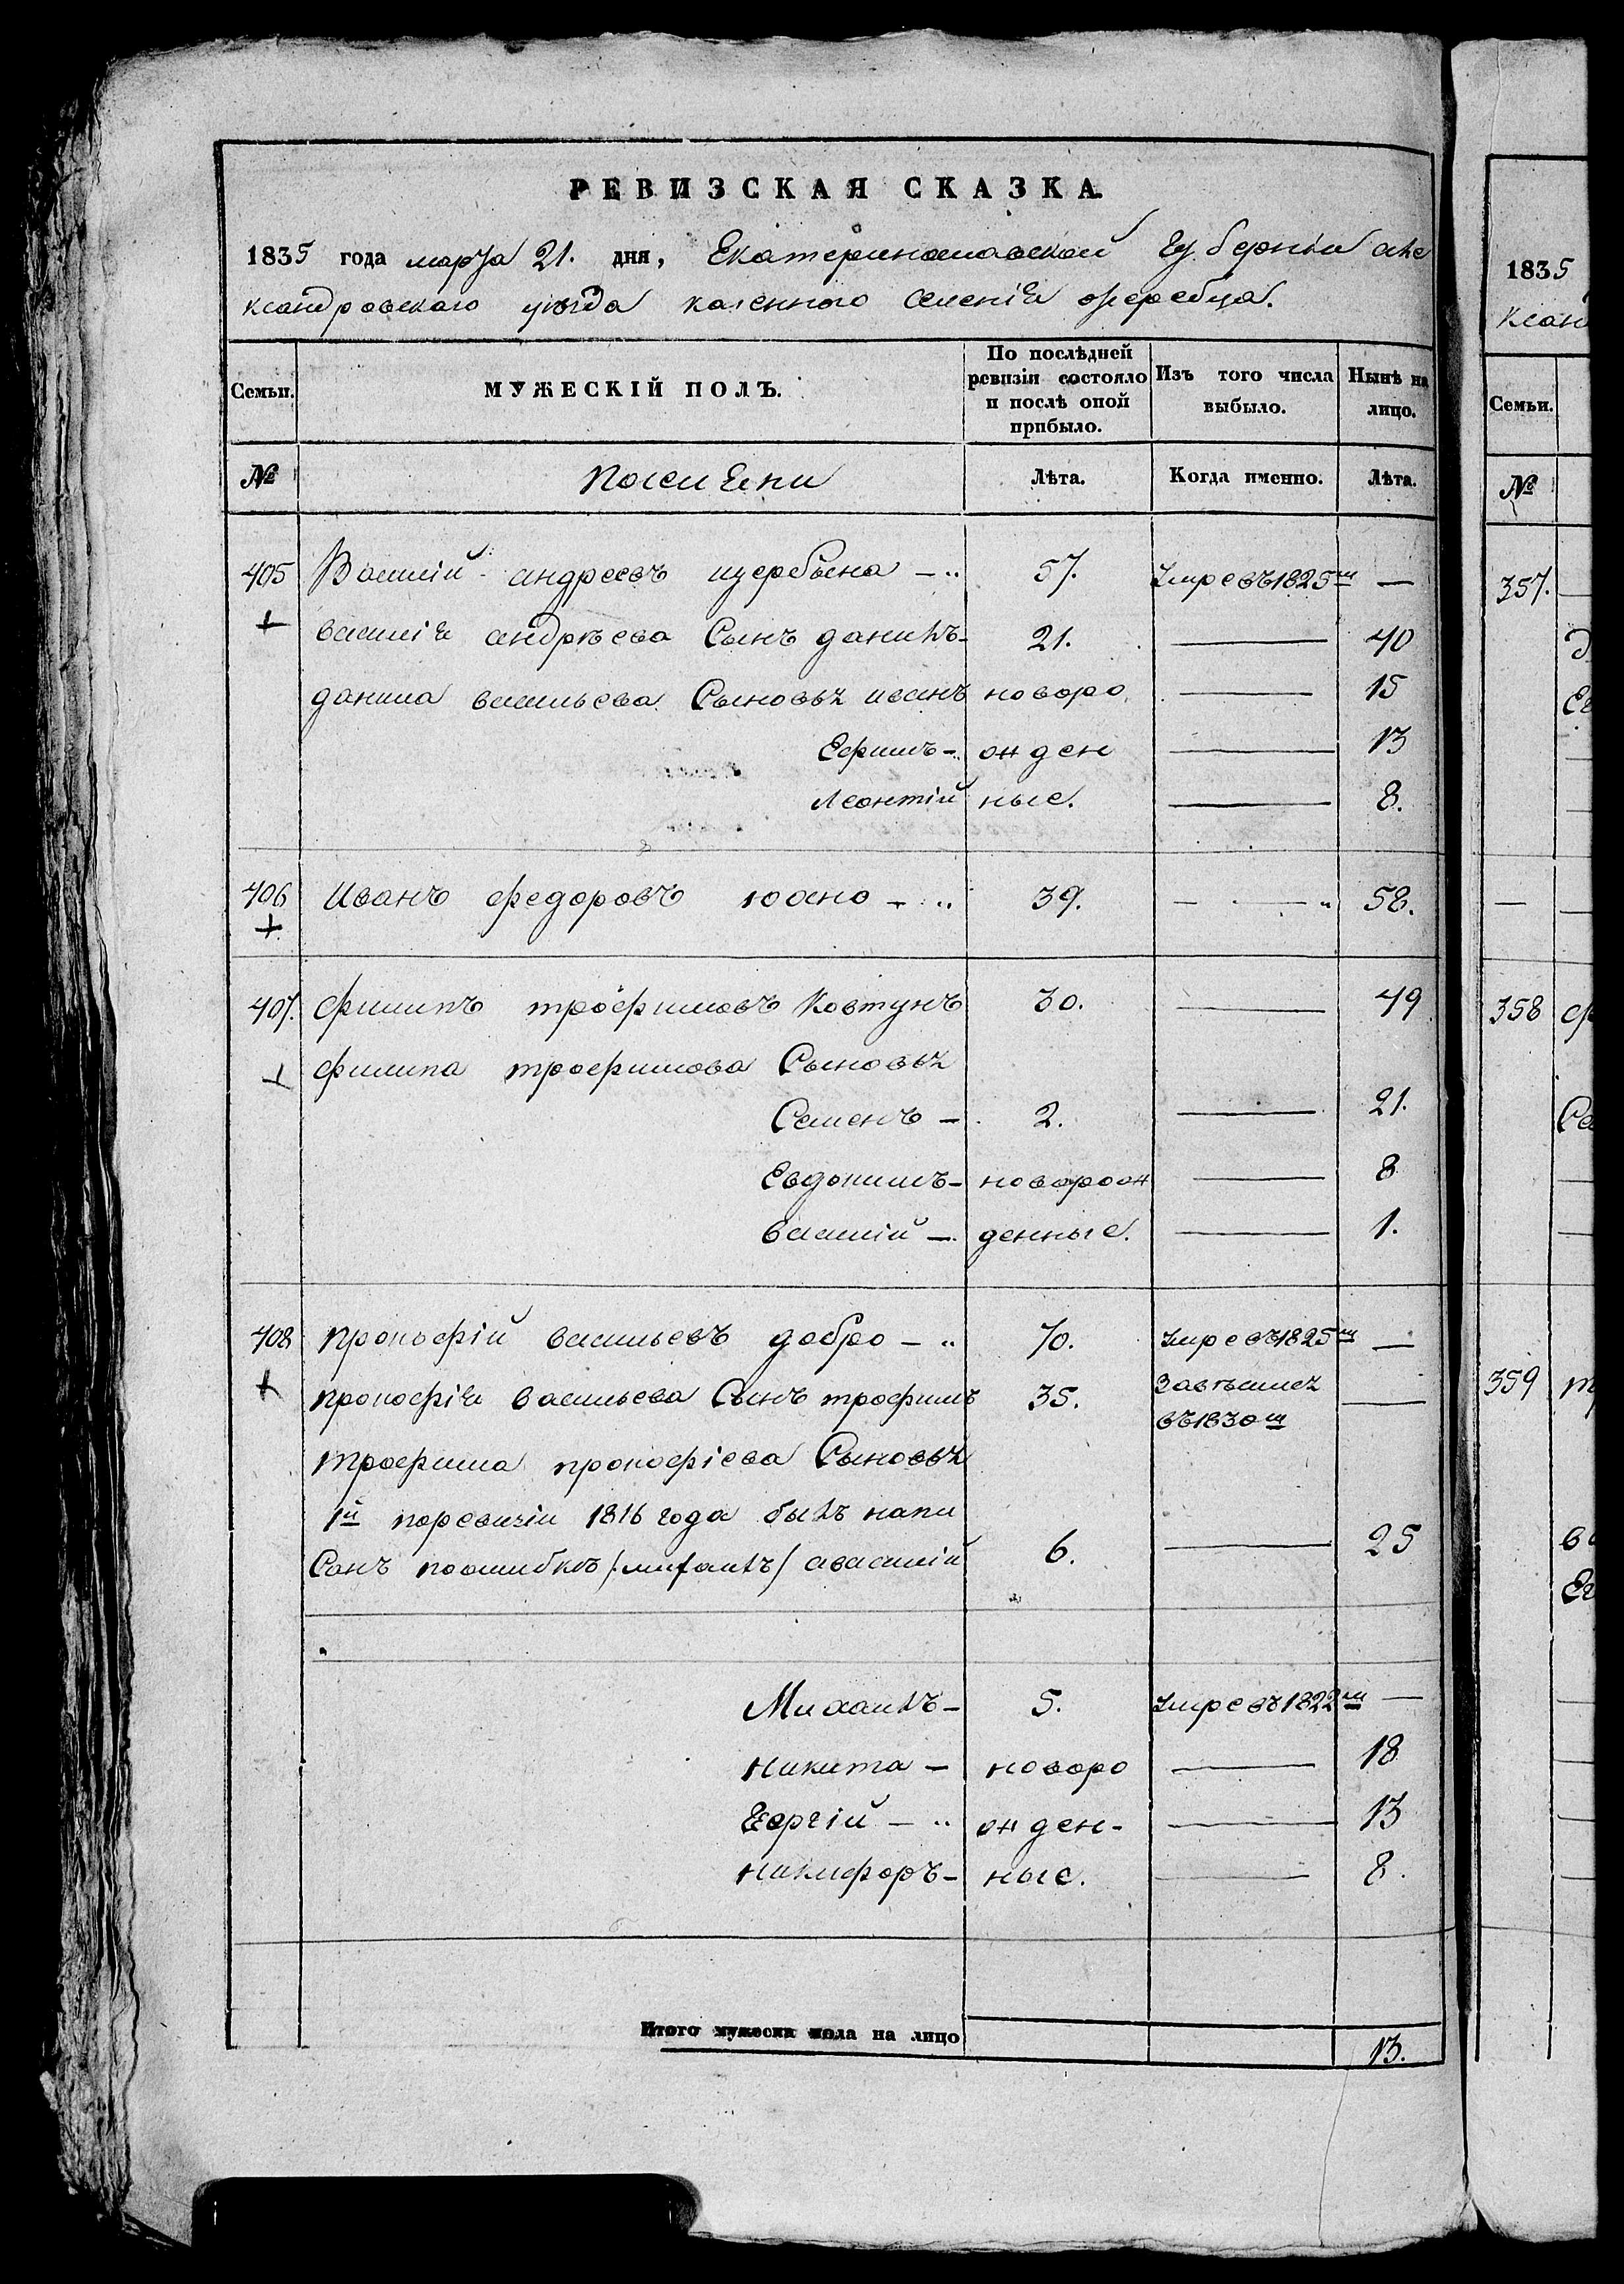 РЕВИЗСКАЯ СКАЗКА.
1835 года марта 21. дня, Екатеринославской Губернiи але
ксандровскаго уѣзда казенного селенiя жеребца.
Семьи.
МУЖЕСКIЙ ПОЛЪ.
По послѣдней ревизiи состояло и послѣ оной прибыло.
Изъ того числа выбыло.
Нынѣ на лицо.
№
Лѣта. Когда именно. Лѣта.
405 Василiй андреевъ щербина — 57. Умре въ 1825м —
+ василiя андрѣева Сынъ данилъ — 21. — 40
данила васильева Сыновья иванъ новоро — 15
Ефимъ — жден — 13
Леонтiй ные. — 8.
406 Иванъ федоровъ — 39. — 58.
+
407. филипъ трофимовъ Ковтунъ 30. — 49
+ филипа трофимова Сыновья
Семенъ — 2. — 21.
Евдокимъ — новорож — 8
василiй — денные. — 1.
408 прокофiй васильевъ добро — 70. Умре въ 1825м —
+ прокофiя васильева Сынъ трофимъ 35. —
въ 1830м
трофима прокофiева Сыновья
1й поревизiи 1816 года былъ напи
Санъ поошибкѣ /: михаилъ / авасилiй 6. — 25
Михаилъ — 5. Умре въ 1822м —
никита — новоро — 18
Георгiй — жден- — 13
никифоръ — ные. — 8.
Итого мужеска пола на лицо 13.
1835
ксан
Семьи.
№
357.
358 ф
Се
359 т